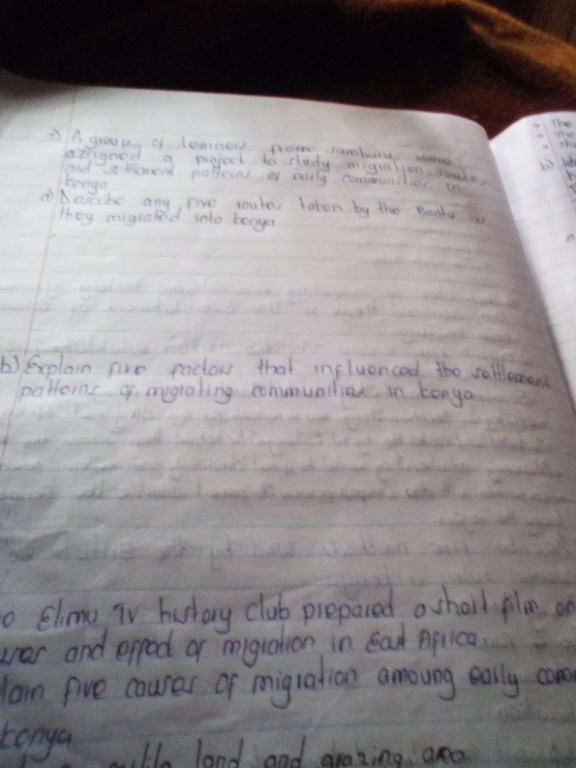 A group of learners from samburu were
assigned a project to study migration routes
and settlement patterns of early communities in
kenya
a) Describe any five routes taken by the Bantu as
they migrated into kenya.
b) Explain five factors that influenced the settlement
patterns of migrating communities in kenya
Elimu TV history club prepared a short film on
and effect of migration in East Africa.
five causes of migration amoung early
kenya
land and grazing area
The
b)